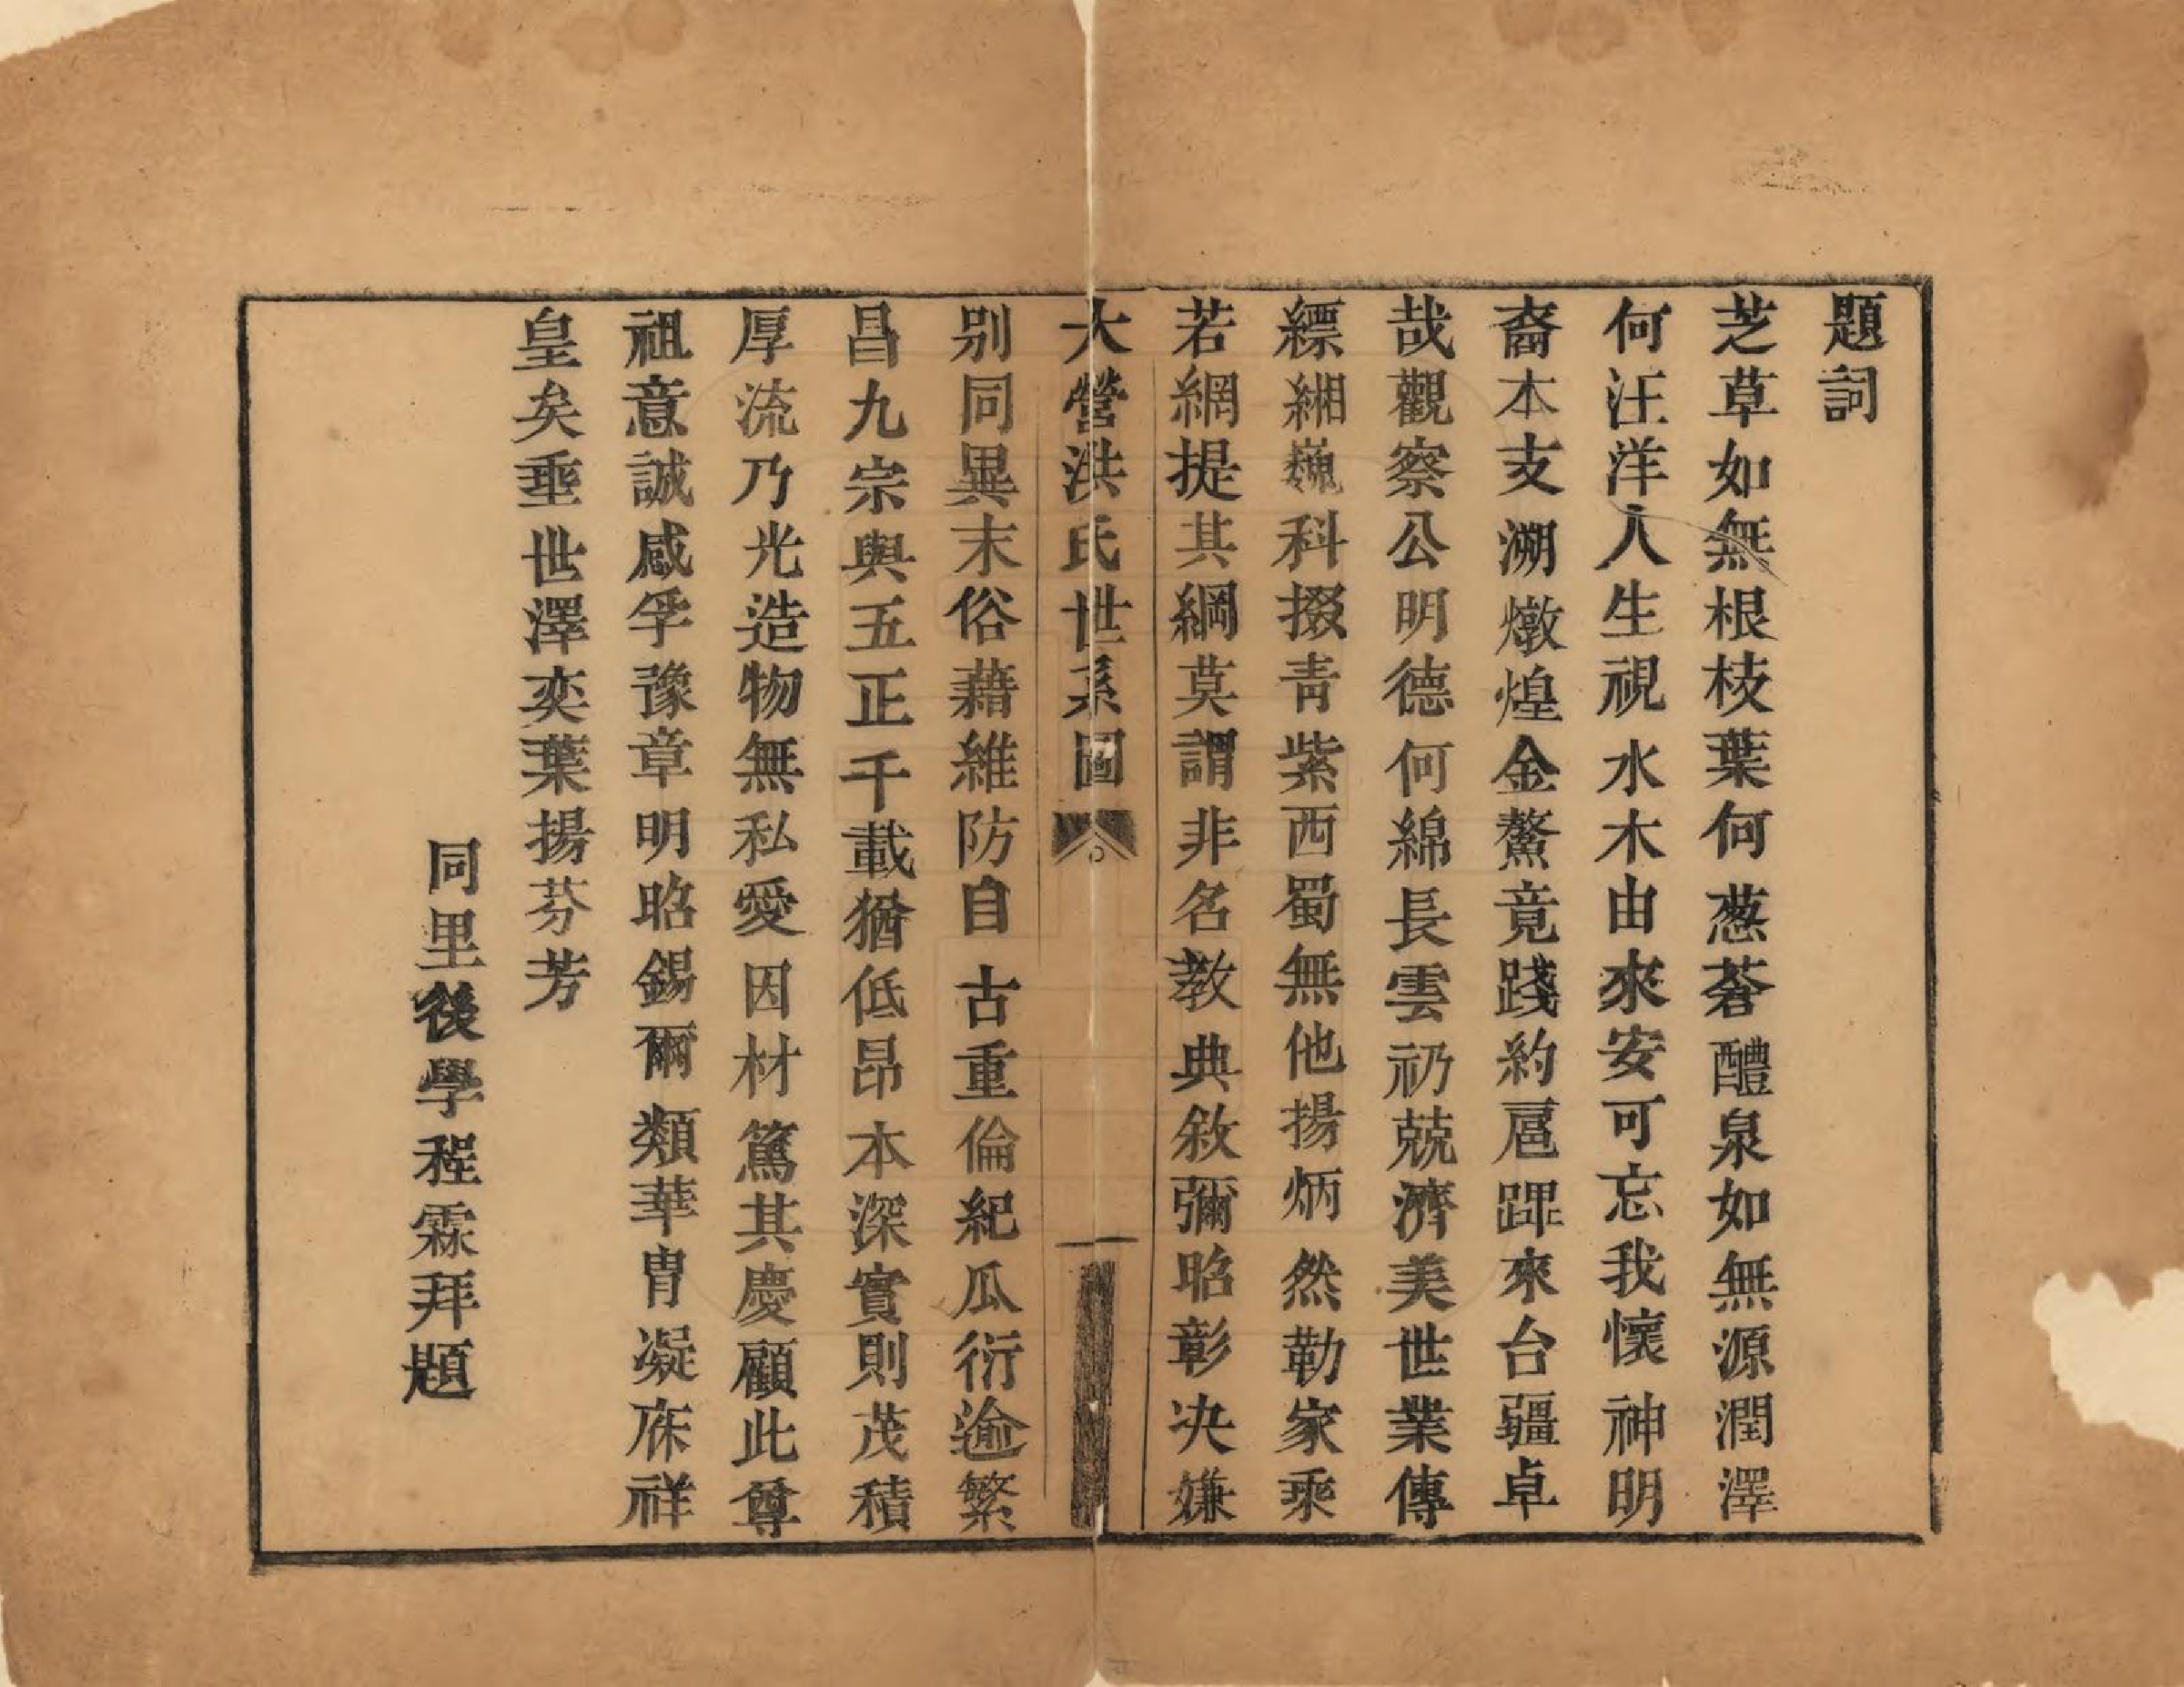 題詞
芝草如無根枝葉何葱蒼醴泉如無源潤澤
何汪洋人生視水木由來安可忘我懷神明
裔本支溯燉煌金鰲竟踐約扈蹕來台疆卓
哉觀察公明德何綿長雲礽兢濟美世業傳
縹緗巍科掇青紫西蜀無他揚炳然勒家乘
若網提其綱莫謂非名教典敘彌昭彰决嫌
大營洪氏世系圖
一
别同異末俗藉維防自古重倫紀瓜衍逾繁
昌九宗與五正千載猶低昂本深實則茂積
厚流乃光造物無私愛因材篤其慶顧此尊
祖意誠感孚豫章明昭錫爾類華胄凝庥祥
皇矣垂世澤奕葉揚芬芳
同里後學程霖拜題